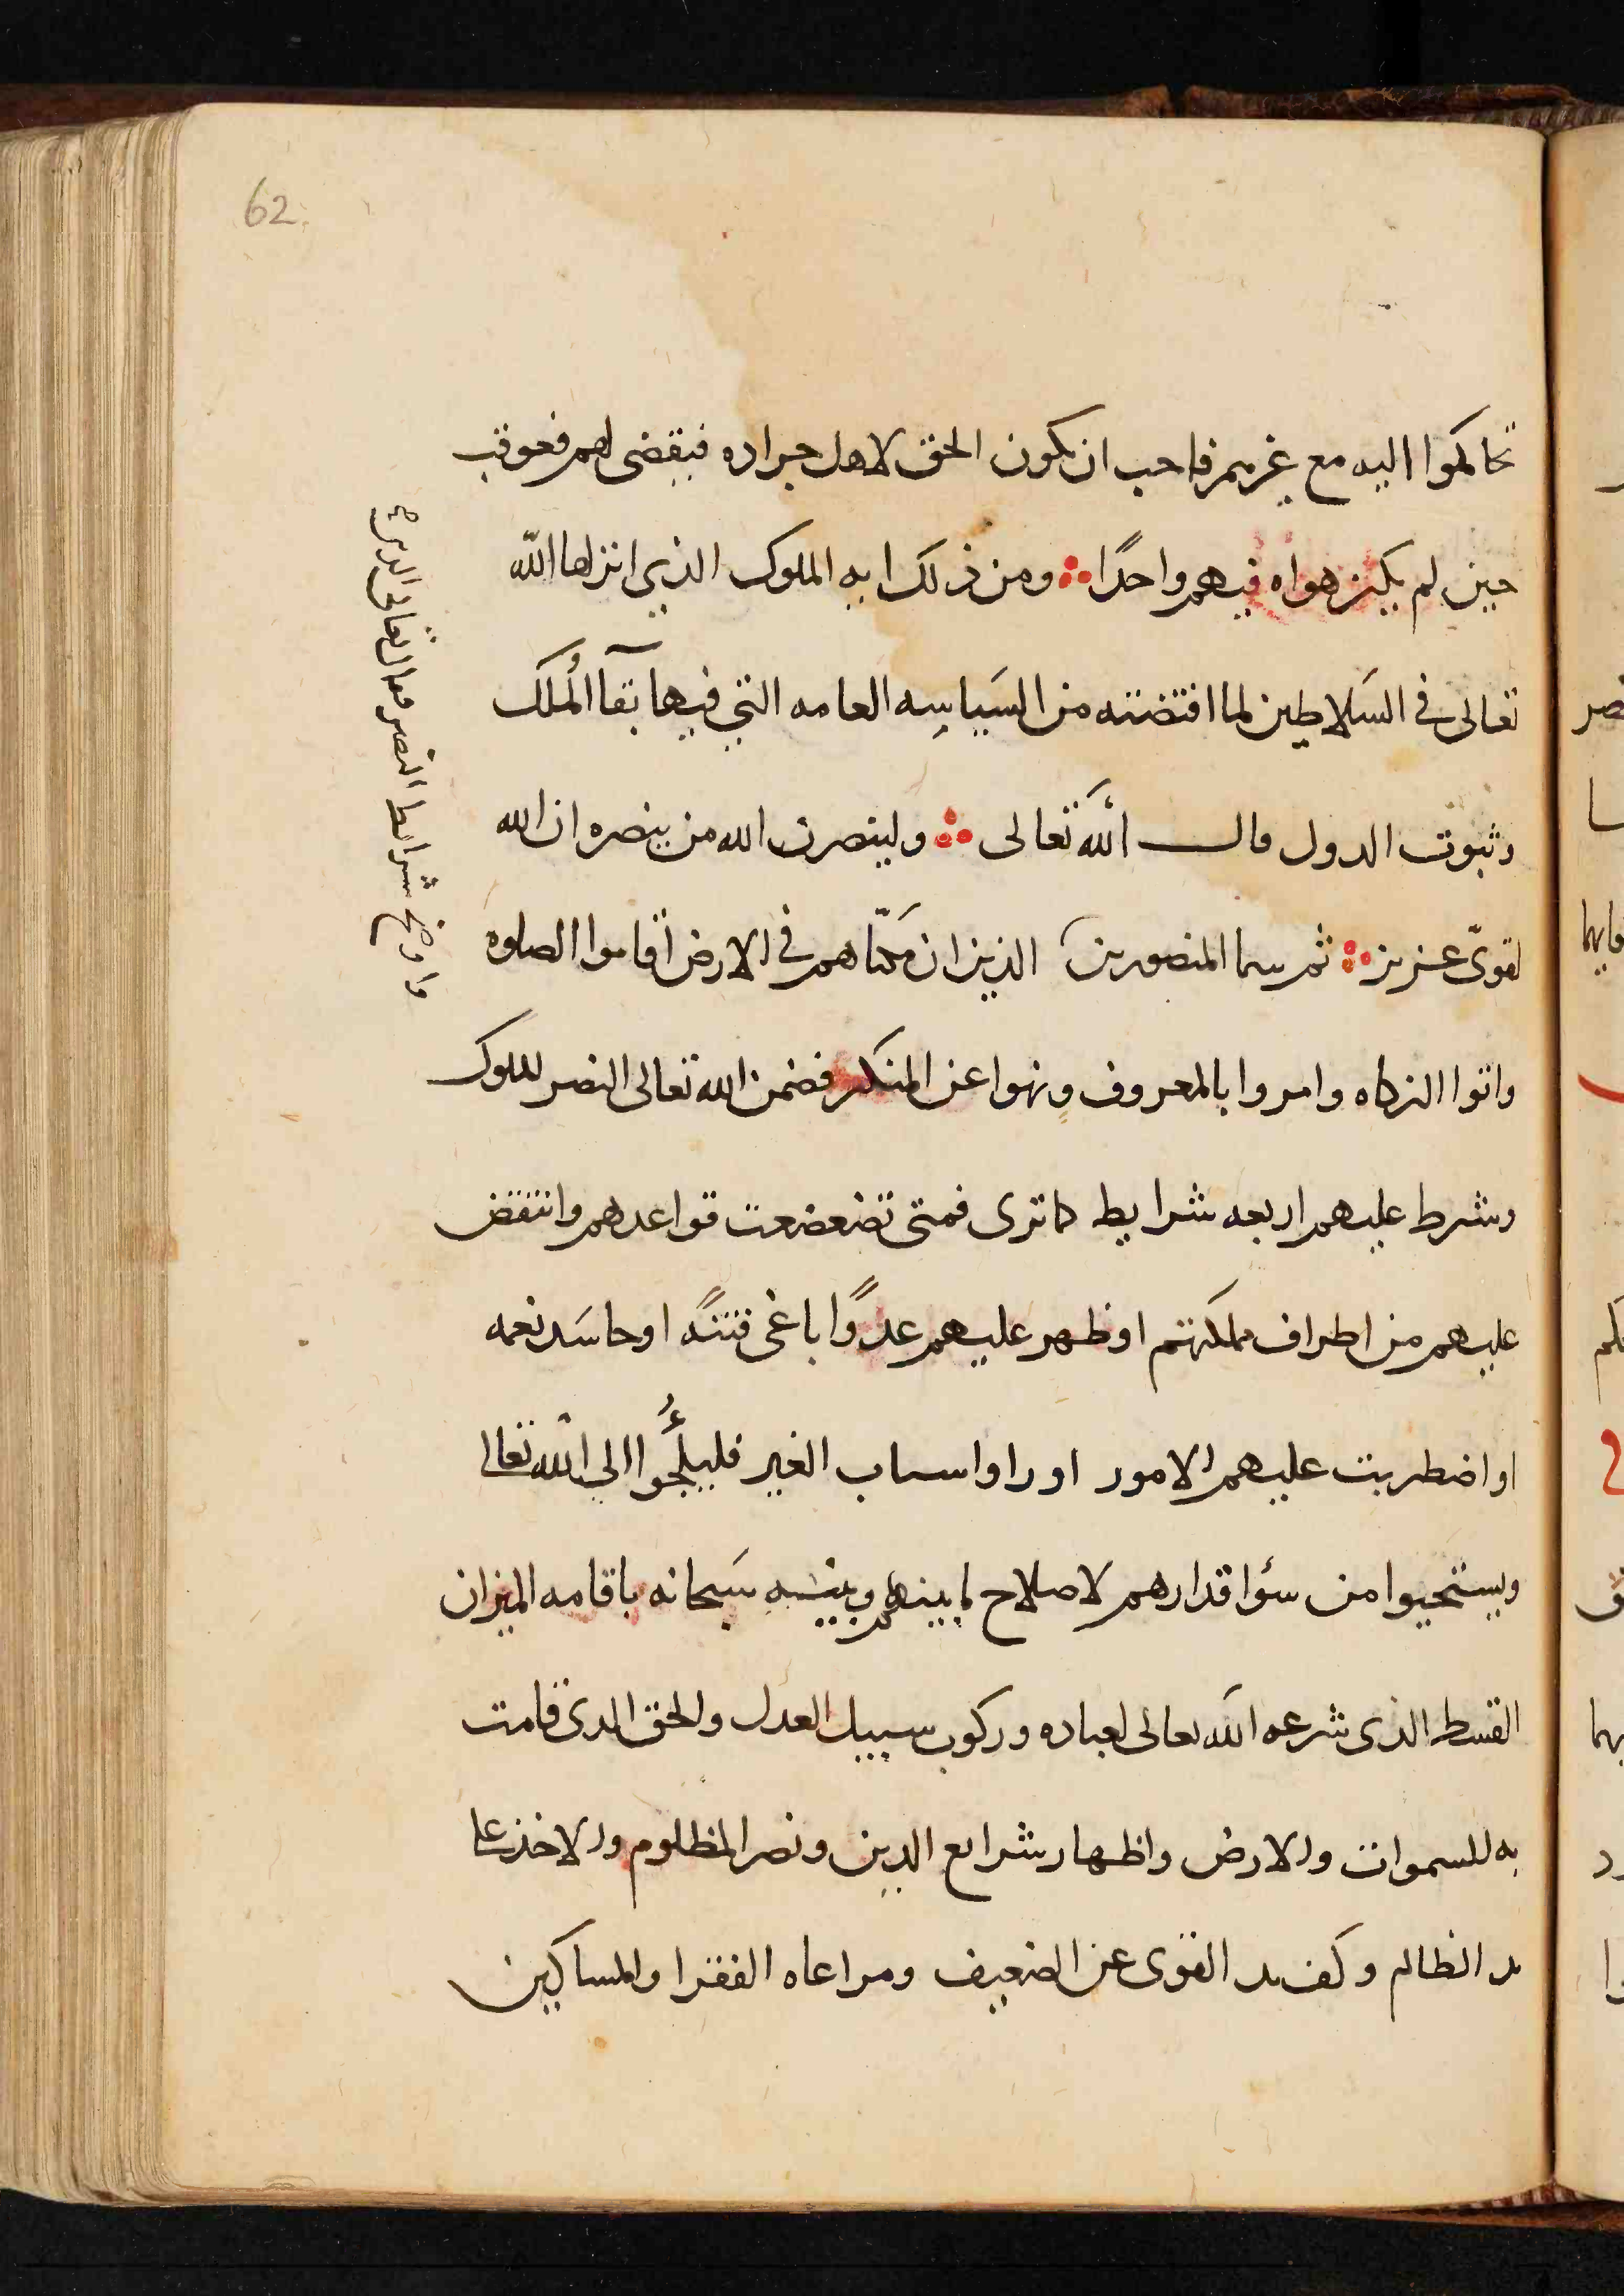 62
تحاكموا اليه مع غريمهم فاحب ان يكون الحق لاهل جراده فيقضى لهم فعوقب
حين لم يكن هواه فيهم واحدًا ومن ذلك ايه الملوك الذي انزلها الله
تعالى في السلاطين لما اقتضته من السياسه العامه التي فيها بقآ المُلك
وثبوت الدول قال الله تعالى ولينصرن الله من ينصره ان الله
لقوىّ عزيز ثم سما المنصورين الذين ان مَكنّاهم في الارض اقاموا الصلوه
واتوا الزكاه وامروا بالمعروف ونهوا عن المنكر فضمن الله تعالى النصر للملوك
وشرط عليهم اربعه شرايط كما ترى فمتى تضعضعت قواعدهم وانتقض
عليهم من اطراف مملكتهم او ظهر عليهم عدوًا باغى فتنةً او حاسد نعمه
او اضطربت عليهم الامور او راوا اسباب الغير فليلجُؤا الي الله تعالى
ويستحيوا من سؤ اقدارهم لاصلاح ما بينهم وبينه سبحانه باقامه الميزان
القسط الذى شرعه الله تعالى لعباده وركوب سبيل العدل والحق الذى قامت
به للسموات والارض واظهار شرايع الدين ونصر المظلوم والاخذ على
يد الظالم وكف يد القوى عن الضعيف ومراعاه الفقرا والمساكين
شرايط النصر فقال تعالى الذين